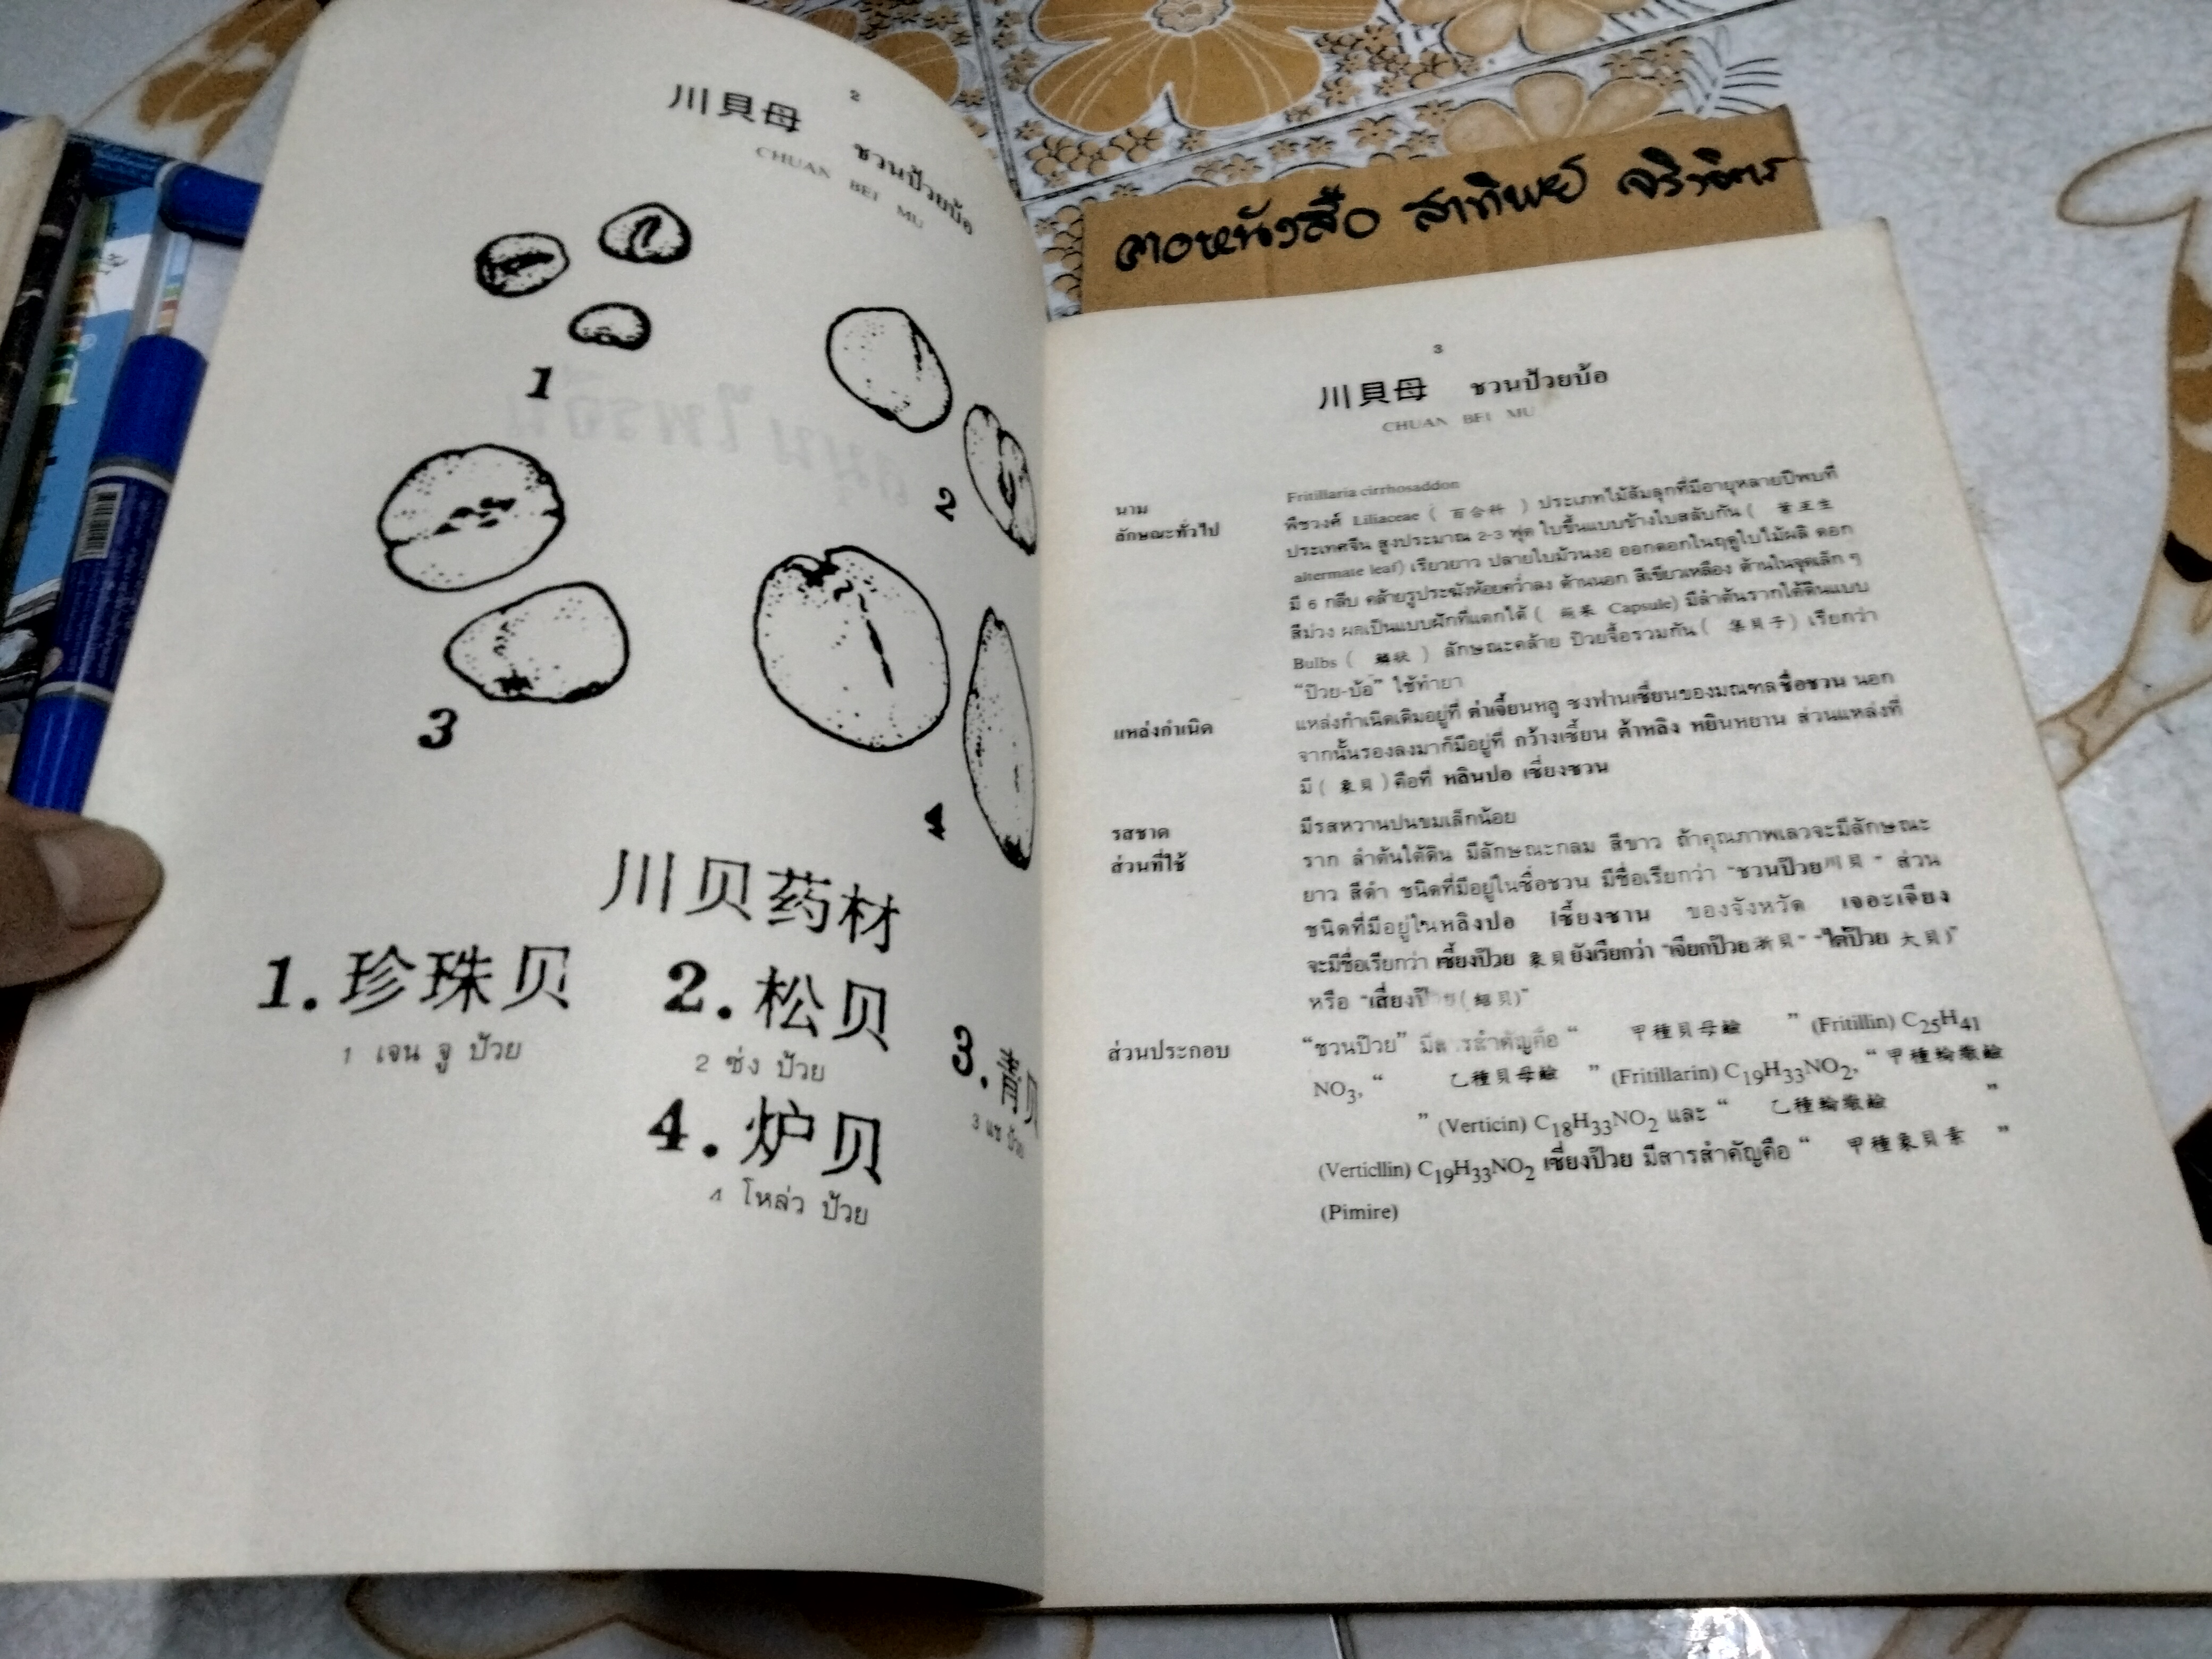 2
川貝母 ชวนป้วยบ้อ
CHUAN BEI MU
1
2
3
4
川贝药材
1. 珍珠贝 2. 松贝 3.
1 เจน จู ป้วย 2 ซ่ง ป้วย 3 ป้วย
4. 炉贝
4 โหล่ว ป้วย
ลาอหนังสือ สาทิพย์
3
川貝母 ชวนป้วยบ้อ
CHUAN BEI MU
นาม Fritillaria cirrhosaddon
ลักษณะทั่วไป พืชวงศ์ Liliaceae ( 百合科 ) ประเภทไม้ล้มลุกที่มีอายุหลายปีพบที่
ประเทศจีน สูงประมาณ 2-3 ฟุต ใบขึ้นแบบข้างใบสลับกัน ( 互生
altermate leaf) เรียวยาว ปลายใบม้วนงอ ออกดอกในฤดูใบไม้ผลิ ดอก
มี 6 กลีบ คล้ายรูประฆังห้อยคว่ำลง ด้านนอก สีเขียวเหลือง ด้านในจุดเล็ก ๆ
สีม่วง ผลเป็นแบบฝักที่แตกได้ ( Capsule) มีลำต้นรากใต้ดินแบบ
Bulbs ( ) ลักษณะคล้าย ป้วยจื้อรวมกัน ( 貝子 ) เรียกว่า
“ป้วย-บ้อ” ใช้ทำยา
แหล่งกำเนิด แหล่งกำเนิดเดิมอยู่ที่ ต่าเจี้ยนหลู ซงฟานเซี่ยนของมณฑลชื่อชวน นอก
จากนั้นรองลงมาก็มีอยู่ที่ กว้างเซี้ยน ต้าหลิง หยินหยาน ส่วนแหล่งที่
มี ( 象貝 ) คือที่ หลินปอ เซี่ยงชวน
รสชาด มีรสหวานปนขมเล็กน้อย
ส่วนที่ใช้ ราก ลำต้นใต้ดิน มีลักษณะกลม สีขาว ถ้าคุณภาพเลวจะมีลักษณะ
ยาว สีดำ ชนิดที่มีอยู่ในชื่อชวน มีชื่อเรียกว่า “ชวนป้วย 川貝 ” ส่วน
ชนิดที่มีอยู่ในหลิงปอ เซี้ยงซาน ของจังหวัด เจอะเจียง
จะมีชื่อเรียกว่า เซี้ยงป้วย 象貝 ยังเรียกว่า “เจียกป้วย 浙貝” “ไต้ป้วย 大貝)”
หรือ “เสี่ยงป้วย ( 貝)”
ส่วนประกอบ “ชวนป้วย” มีสารสำคัญคือ “ 甲種貝母鹼 ” (Fritillin) C25H41
NO3, “ 乙種貝母鹼 ” (Fritillarin) C19H33NO2, “ 甲種輪環鹼
” (Verticin) C18H33NO2 และ “ 乙種輪環鹼 ”
(Verticllin) C19H33NO2 เซี่ยงป้วย มีสารสำคัญคือ “ 甲種象貝素 ”
(Pimire)